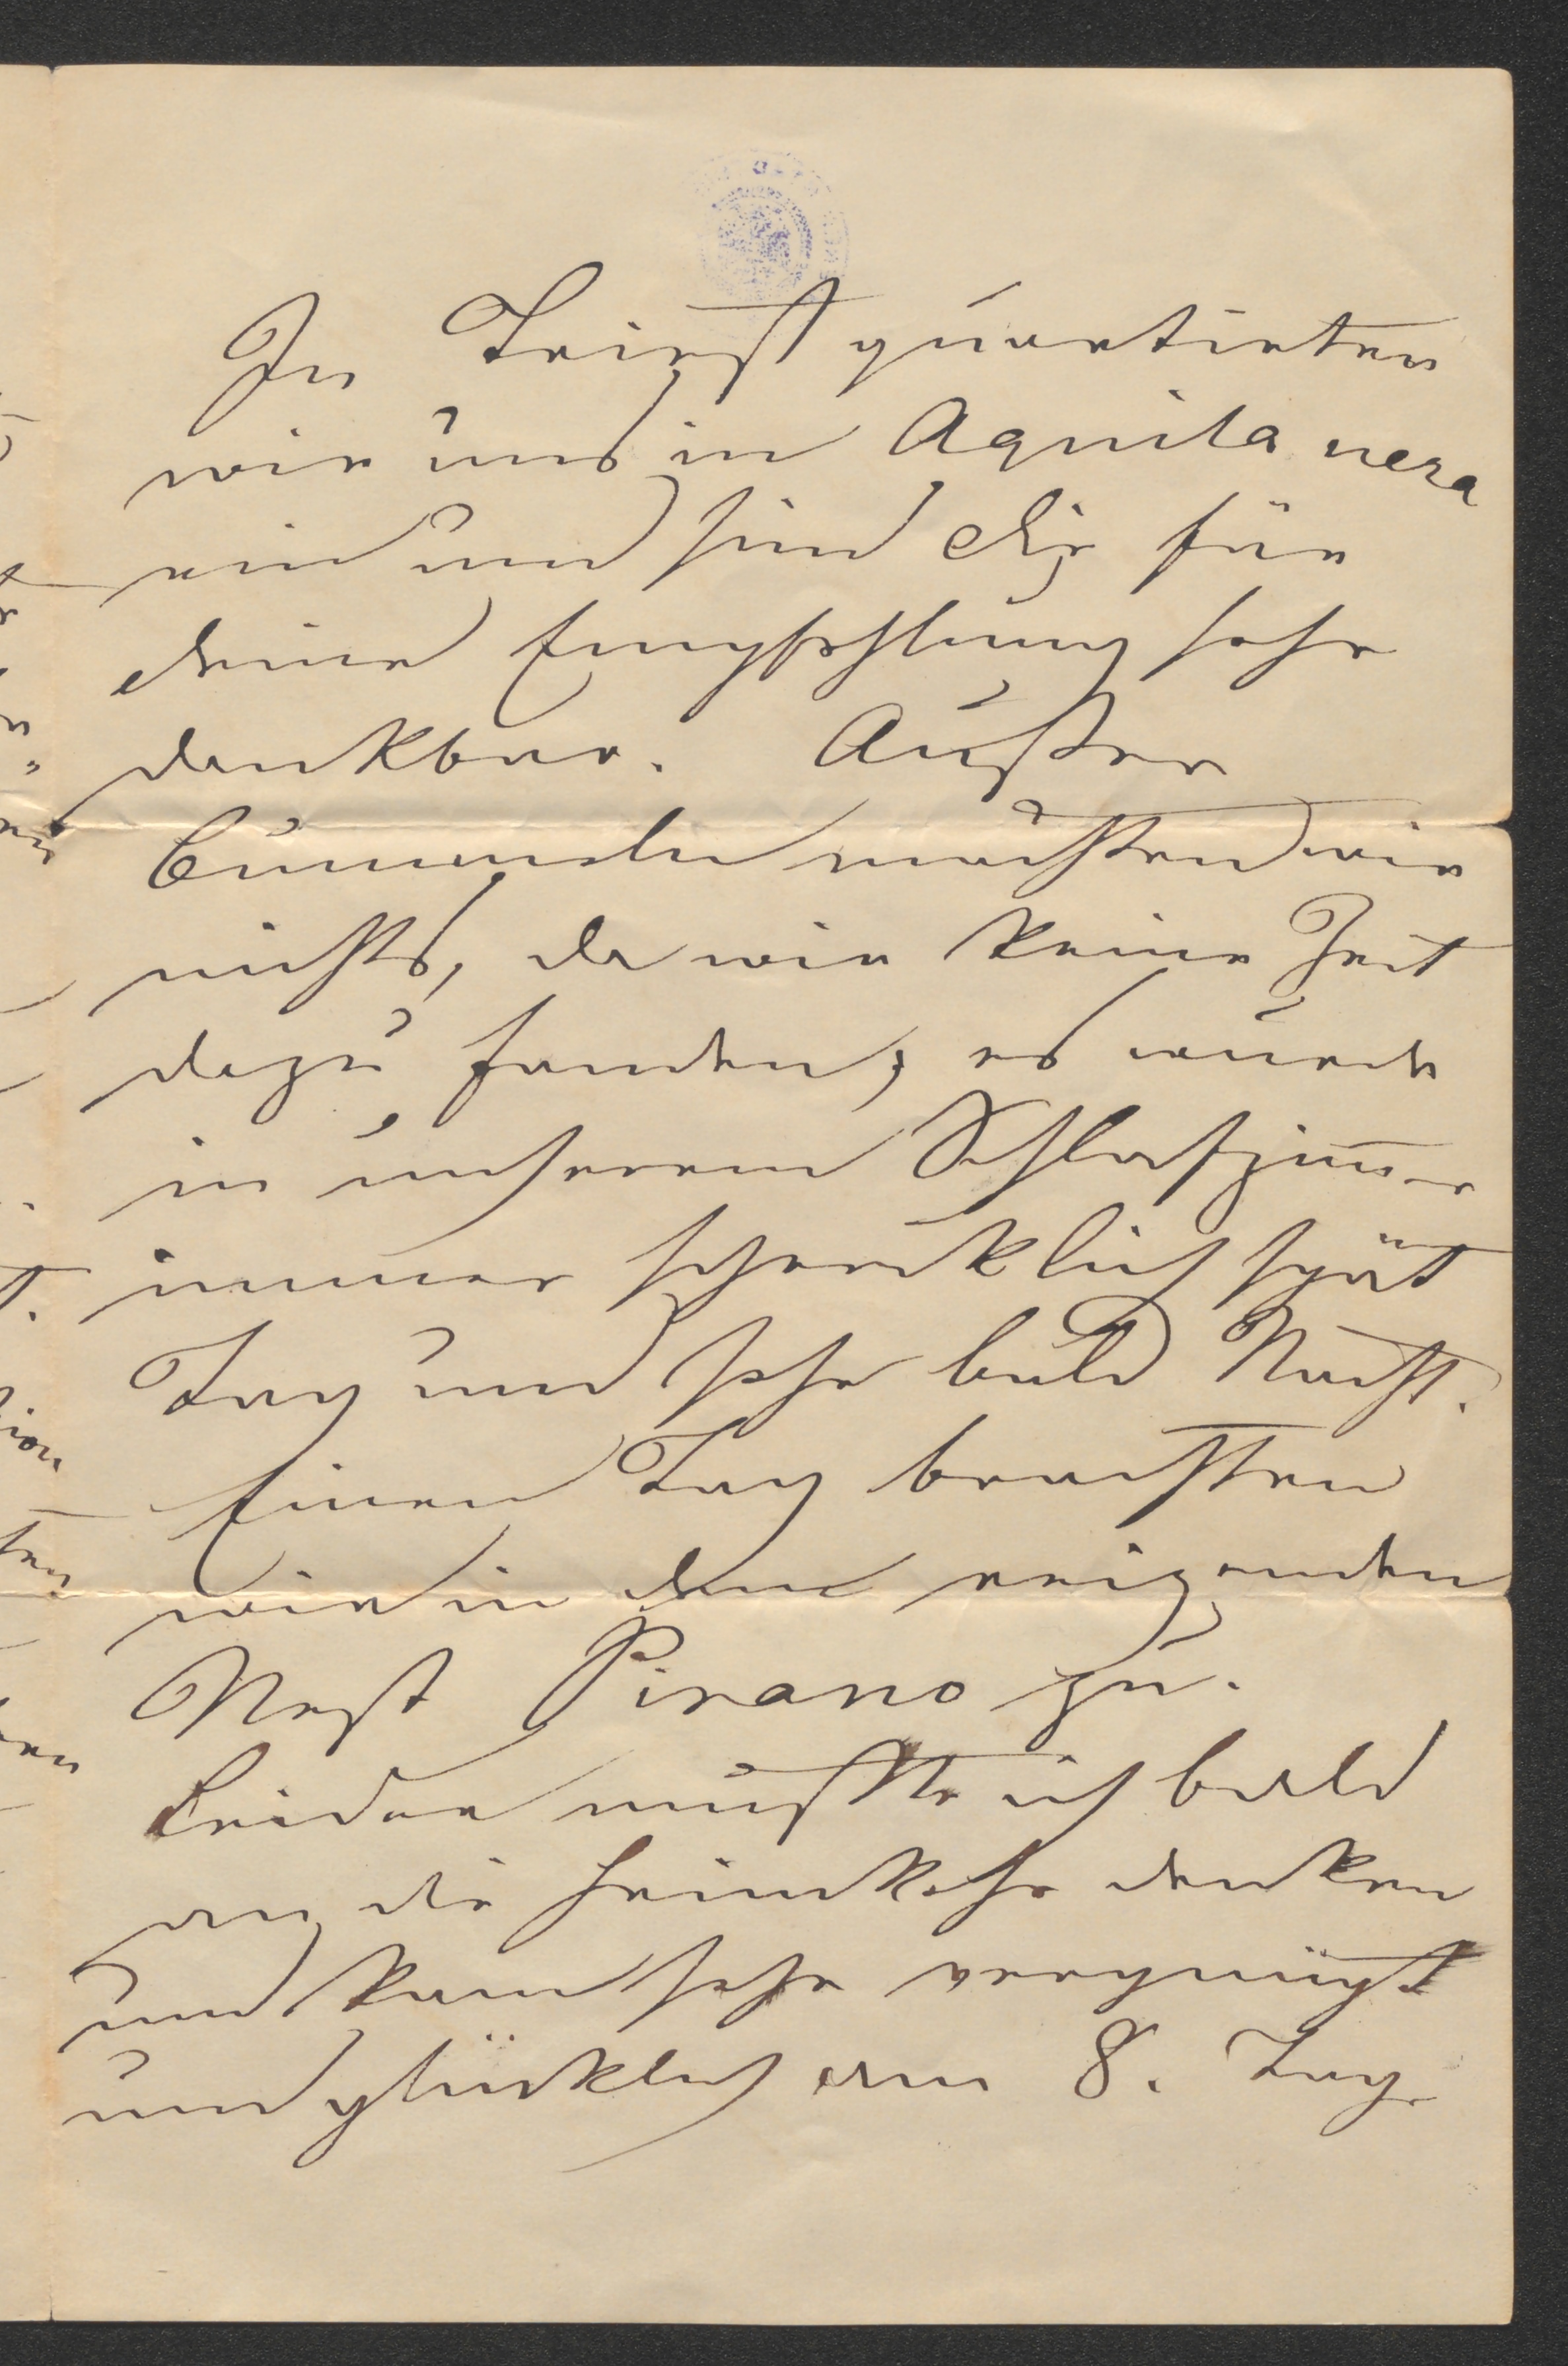 In Triest quartirten
wir uns in Aquila nera
ein und sind Dir für
deine Empfehlung sehr
dankbar. Außer
bummeln machten wir
nichts, da wir keine Zeit
dazu fanden; es wurde
in unserem Schlafzimer
immer schrecklich spät
Tag und sehr bald Nacht.
Einen Tag brachten
wir in dem reizenden
Nest Pirano zu.
Leider mußte ich bald
an die Heimkehr denken
und kam sehr vergnügt
und glücklich am 8. Tage